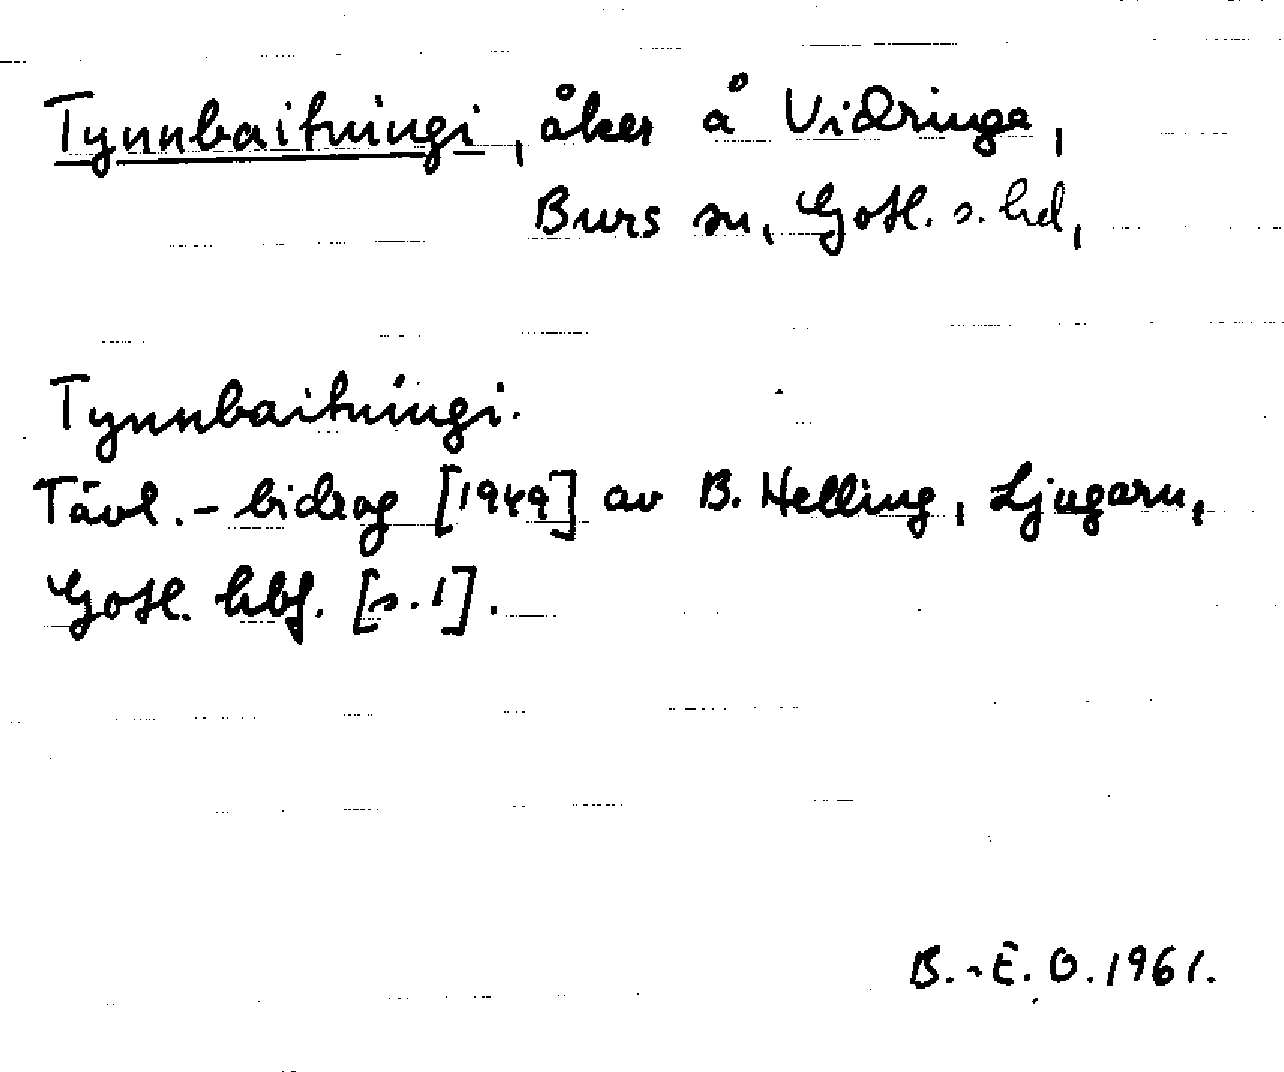 Tynnbaitningi, åker å Vidringe,
Burs sn, Gotl. s. hd,
Tynnbaitningi.
Tävl.-bidrag [1949] av B. Helling, Ljugarn,
Gotl. hbf. [s. 1].
B.-E. O. 1961.